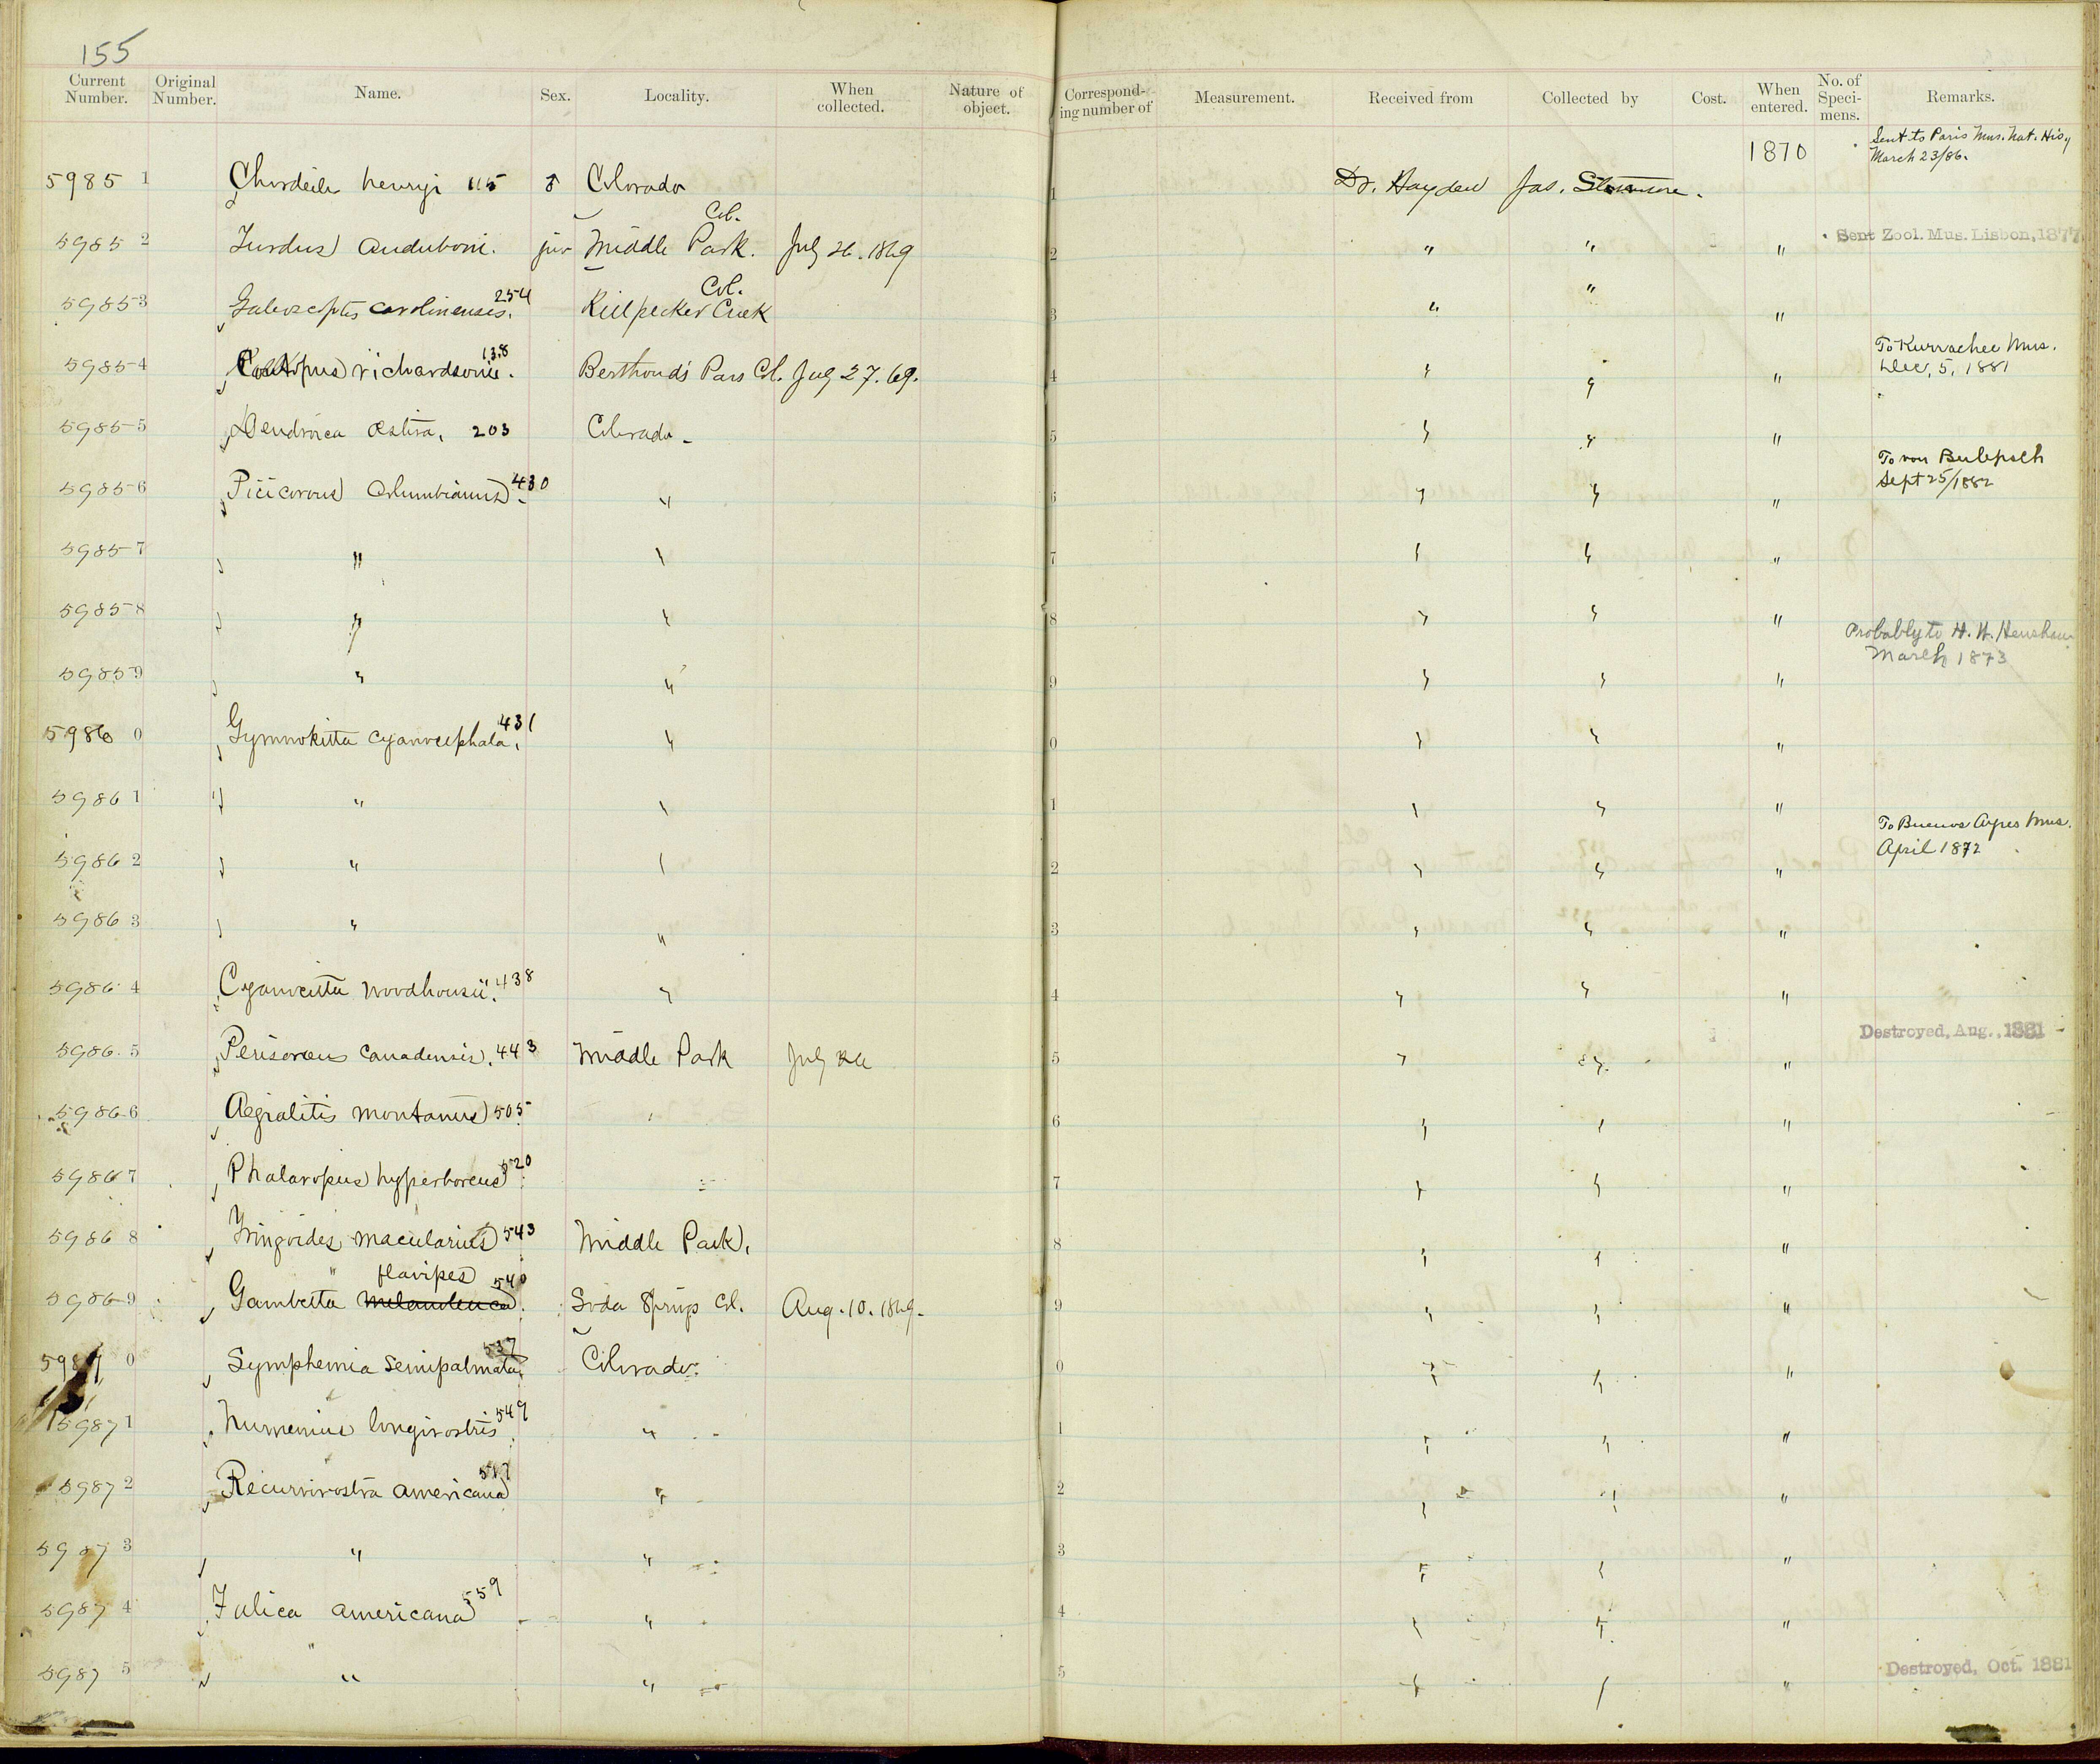 155
Current Number. Original Number. Name. Sex. Locality. When collected. Nature of object. Corresponding number of Measurement. Received from Collected by Cost. When entered. No. of Specimens. Remarks.
1870 Sent to Paris Mus. Nat. His,y March 23/86.
5985 1 Chordeile henryi 115 ♂ Colorado 1 Dr. Hayden Jas. Stevenson.
5985 2 Turdus auduboni. juv Middle Park. Col. July 26. 1869 2 " " " Sent Zool. Mus. Lisbon, 1877
5985 3 Galeoscoptes carolinensis. 254 Killpecker Creek Col. 3 " " "
5985 4 Contopus richardsonii. 138 Berthoud's Pass Col. July 27. 69. 4 " " " To Kurrachee Mus. Dec, 5, 1881
5985 5 Dendroica æstiva, 203 Colorado 5 " " "
5985 6 Picicorvus columbianus 430 " 6 " " " To von Berlepsch Sept 25/1882
5985 7 " " 7 " " "
5985 8 " " 8 " " "
5985 9 " " 9 " " " Probably to H. W. Henshaw March 1873
5986 0 Gymnokitta cyanocephala, 431 " 0 " " "
5986 1 " " 1 " " "
5986 2 " " 2 " " " To Buenos Ayres Mus. April 1872
5986 3 " " 3 " " "
5986 4 Cyanocitta woodhousii. 438 " 4 " " "
5986 5 Perisoreus canadensis. 443 Middle Park July 5 " " " Destroyed, Aug., 1881
5986 6 Aegialitis montanus 505 6 " " "
5986 7 Phalaropus hyperboreus 520 7 " " "
5986 8 Tringoides macularius 543 Middle Park, 8 " " "
5986 9 Gambetta melanoleuca " flavipes 540 Soda Springs Col. Aug. 10. 1869. 9 " " "
5987 0 Symphemia semipalmata, 537 Colorado. 0 " " "
5987 1 Numenius longirostris 549 " 1 " " "
5987 2 Recurvirostra americana 517 " 2 " " "
5987 3 " " 3 " " "
5987 4 Fulica americana 559 " 4 " " "
5987 5 " " 5 " " " Destroyed, Oct. 1881